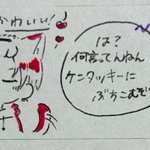 かわいい!
は?
何言ってんねん
ケンタッキーに
ぶちこむぞ